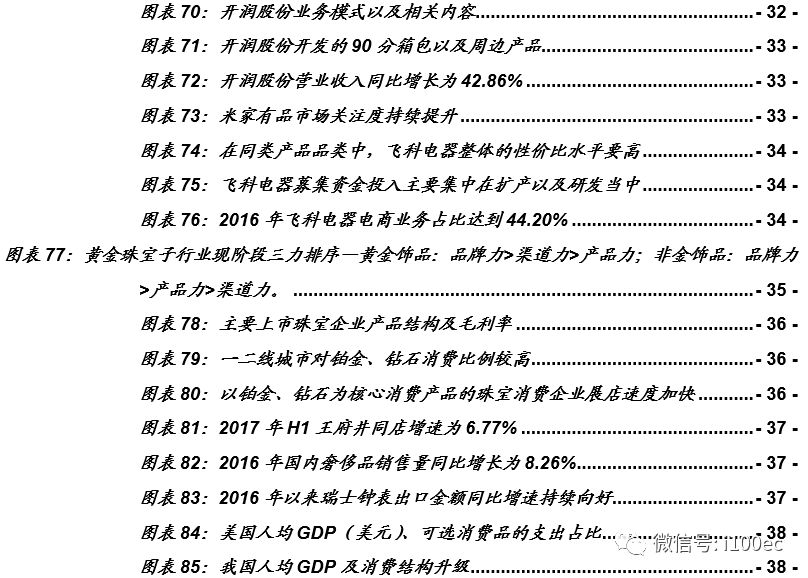 图表 70：开润股份业务模式以及相关内容.......................................................- 32 -
图表 71：开润股份开发的 90 分箱包以及周边产品..........................................- 33 -
图表 72：开润股份营业收入同比增长为 42.86%.............................................- 33 -
图表 73：米家有品市场关注度持续提升..........................................................- 33 -
图表 74：在同类产品品类中，飞科电器整体的性价比水平要高......................- 34 -
图表 75：飞科电器募集资金投入主要集中在扩产以及研发当中......................- 34 -
图表 76：2016 年飞科电器电商业务占比达到 44.20%....................................- 34 -
图表 77：黄金珠宝子行业现阶段三力排序—黄金饰品：品牌力>渠道力>产品力；非金饰品：品牌力
>产品力>渠道力。............................................................................................- 35 -
图表 78：主要上市珠宝企业产品结构及毛利率...............................................- 36 -
图表 79：一二线城市对铂金、钻石消费比例较高............................................- 36 -
图表 80：以铂金、钻石为核心消费产品的珠宝消费企业展店速度加快...........- 36 -
图表 81：2017 年 H1 王府井同店增速为 6.77%..............................................- 37 -
图表 82：2016 年国内奢侈品销售量同比增长为 8.26%...................................- 37 -
图表 83：2016 年以来瑞士钟表出口金额同比增速持续向好............................- 37 -
图表 84：美国人均 GDP（美元）、可选消费品的支出占比..............................- 38 -
图表 85：我国人均 GDP 及消费结构升级........................................................- 38 -
微信号: i100ec